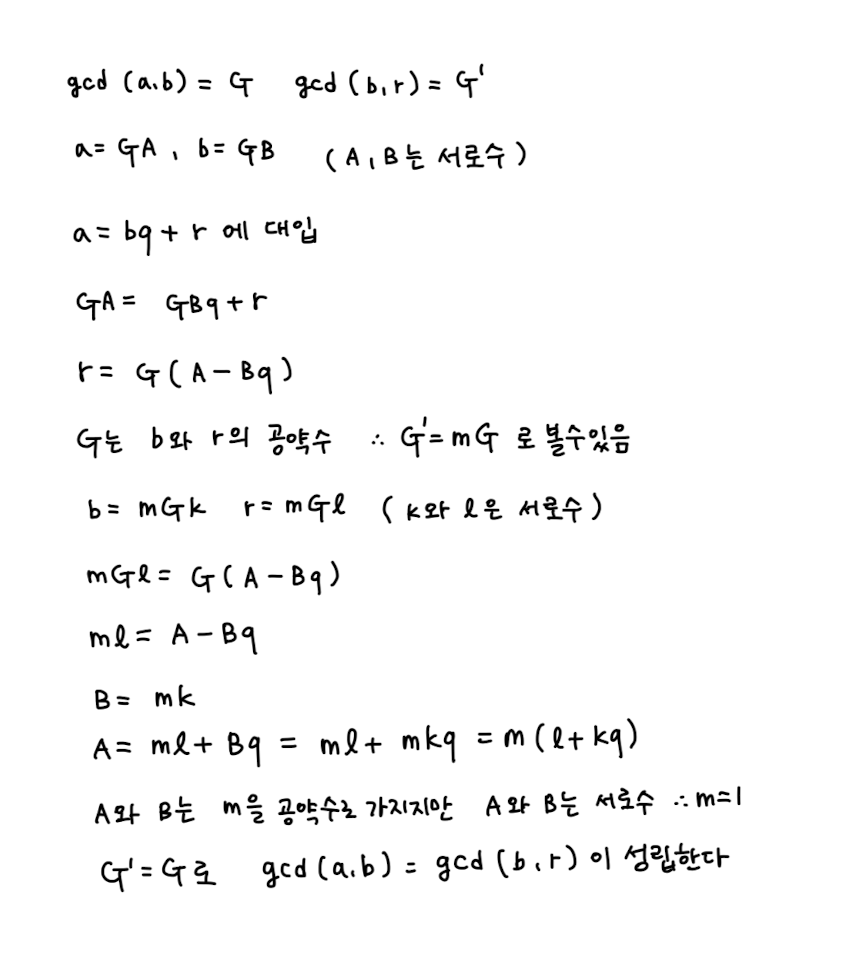 gcd (a.b) = G   gcd (b,r) = G'
a = GA , b = GB   (A, B는 서로수)
a = bq + r 에 대입
GA = GBq + r
r = G(A - Bq)
G는 b와 r의 공약수 ∴ G' = mG 로 볼수있음
b = mGk   r = mGℓ (k와 ℓ은 서로수)
mGℓ = G(A - Bq)
mℓ = A - Bq
B = mk
A = mℓ + Bq = mℓ + mkq = m(ℓ + kq)
A와 B는 m을 공약수로 가지지만 A와 B는 서로수 ∴ m=1
G' = G로 gcd (a.b) = gcd (b,r) 이 성립한다